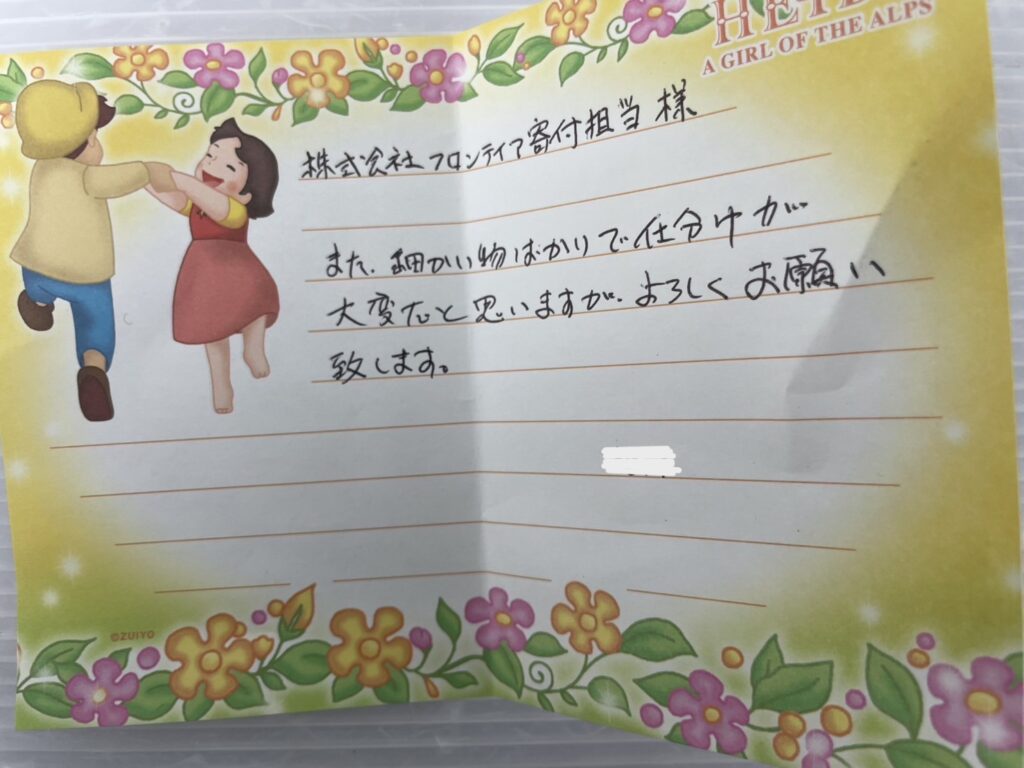 A GIRL OF THE ALPS
株式会社フロンティア寄付担当 様
また、細かい物ばかりで仕分けが
大変だと思いますが、よろしくお願い
致します。
©ZUIYO